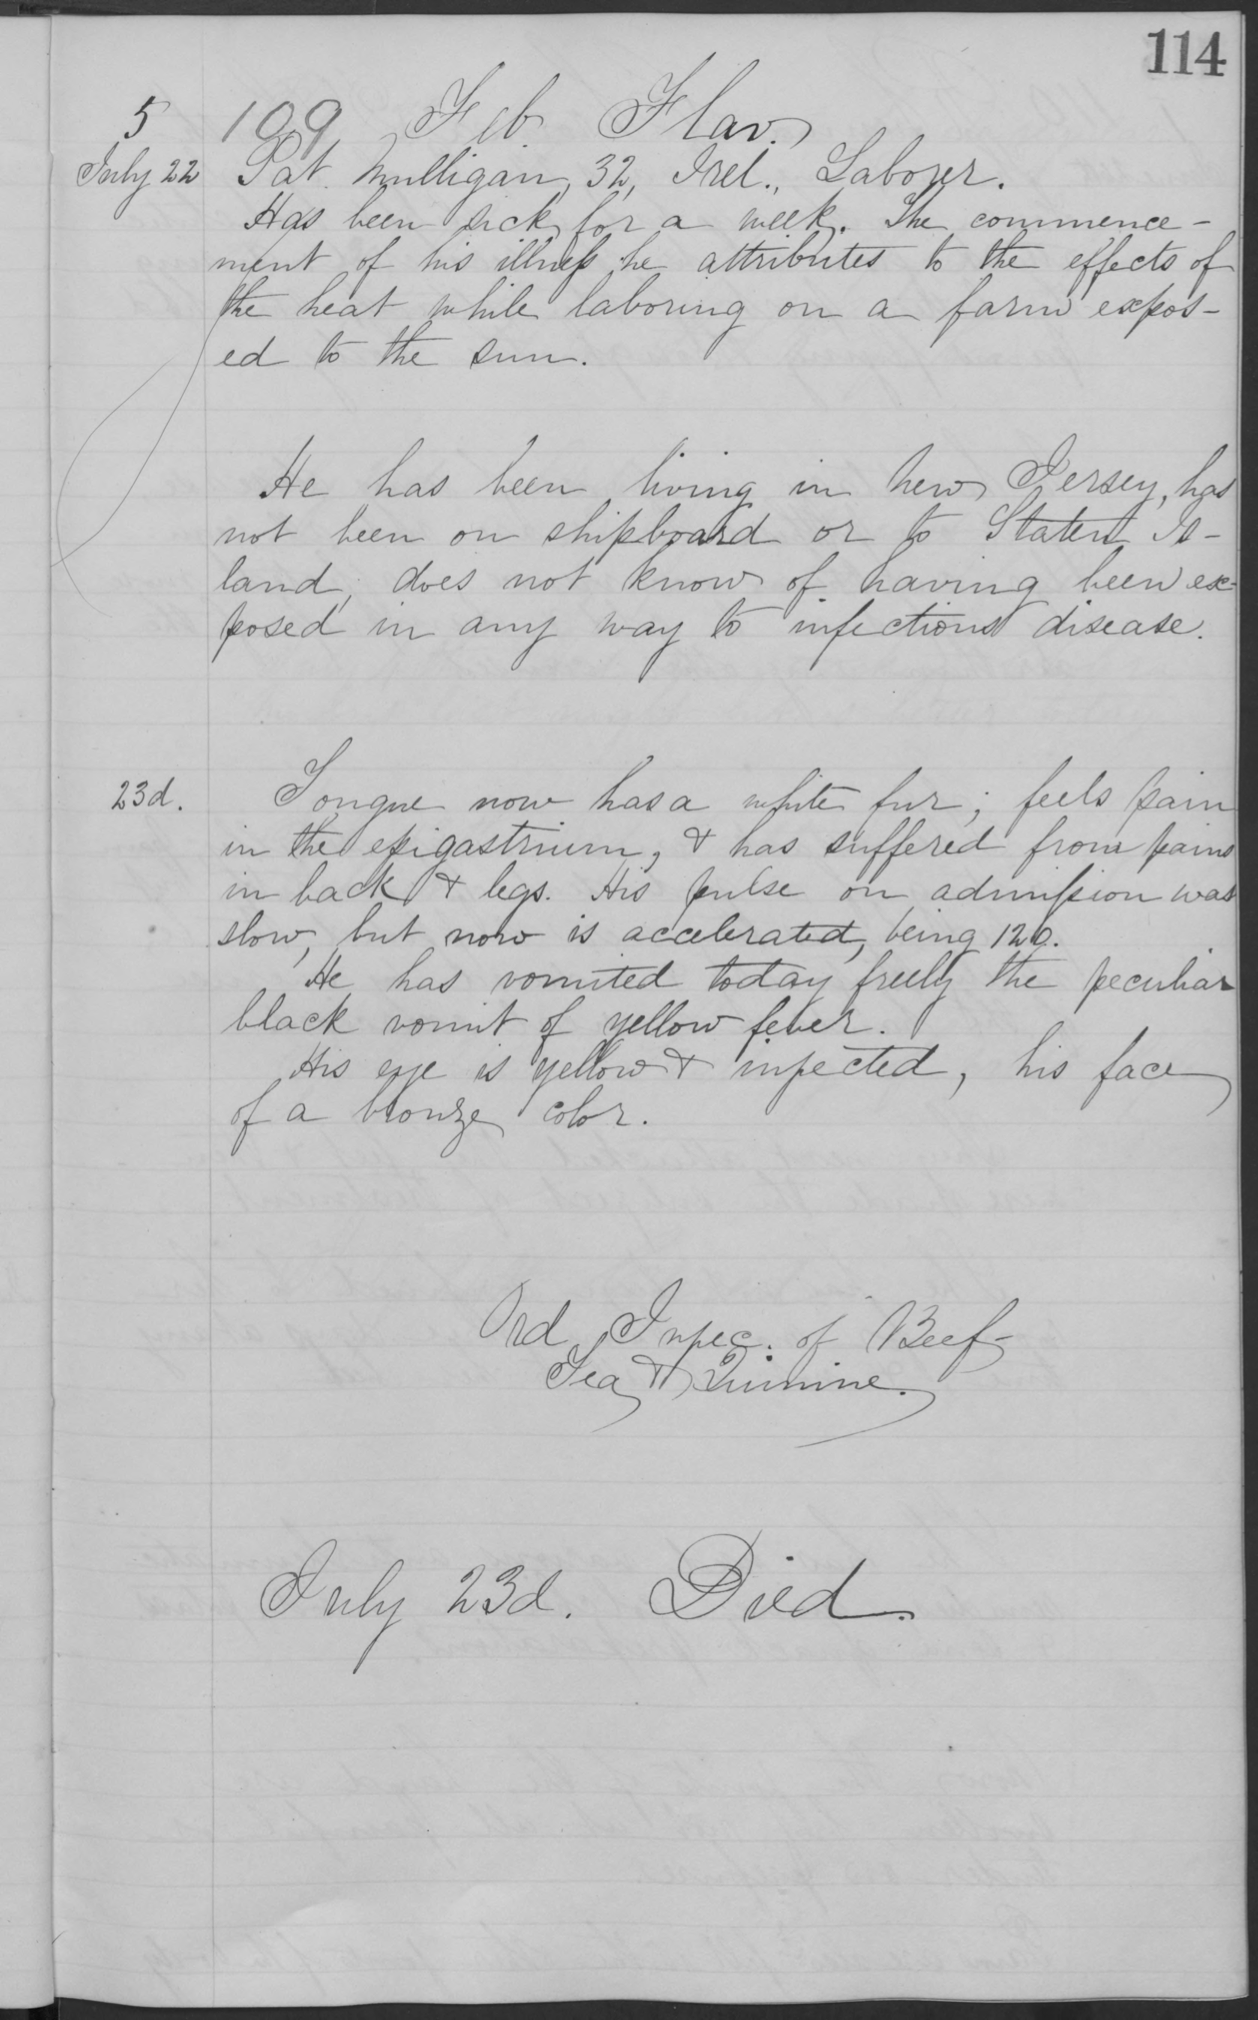 114
5 109 Feb Flav.
July 22 Pat. Mulligan, 32, Irel., Laborer.
Has been sick for a week. The commence-
ment of his illness he attributes to the effects of
the heat while laboring on a farm expos-
ed to the sun.
He has been living in New Jersey, has
not been on shipboard or to Staten Is-
land, does not know of having been ex-
posed in any way to infectious disease.
23d. Tongue now has a white fur; feels pain
in the epigastrium, & has suffered from pains
in back & legs. His pulse on admission was
slow, but now is accelerated, being 120.
He has vomited today freely the peculiar
black vomit of yellow fever.
His eye is yellow & injected, his face
of a bronze color.
Ord Injec. of Beef-
Tea & Quinine.
July 23d. Died.